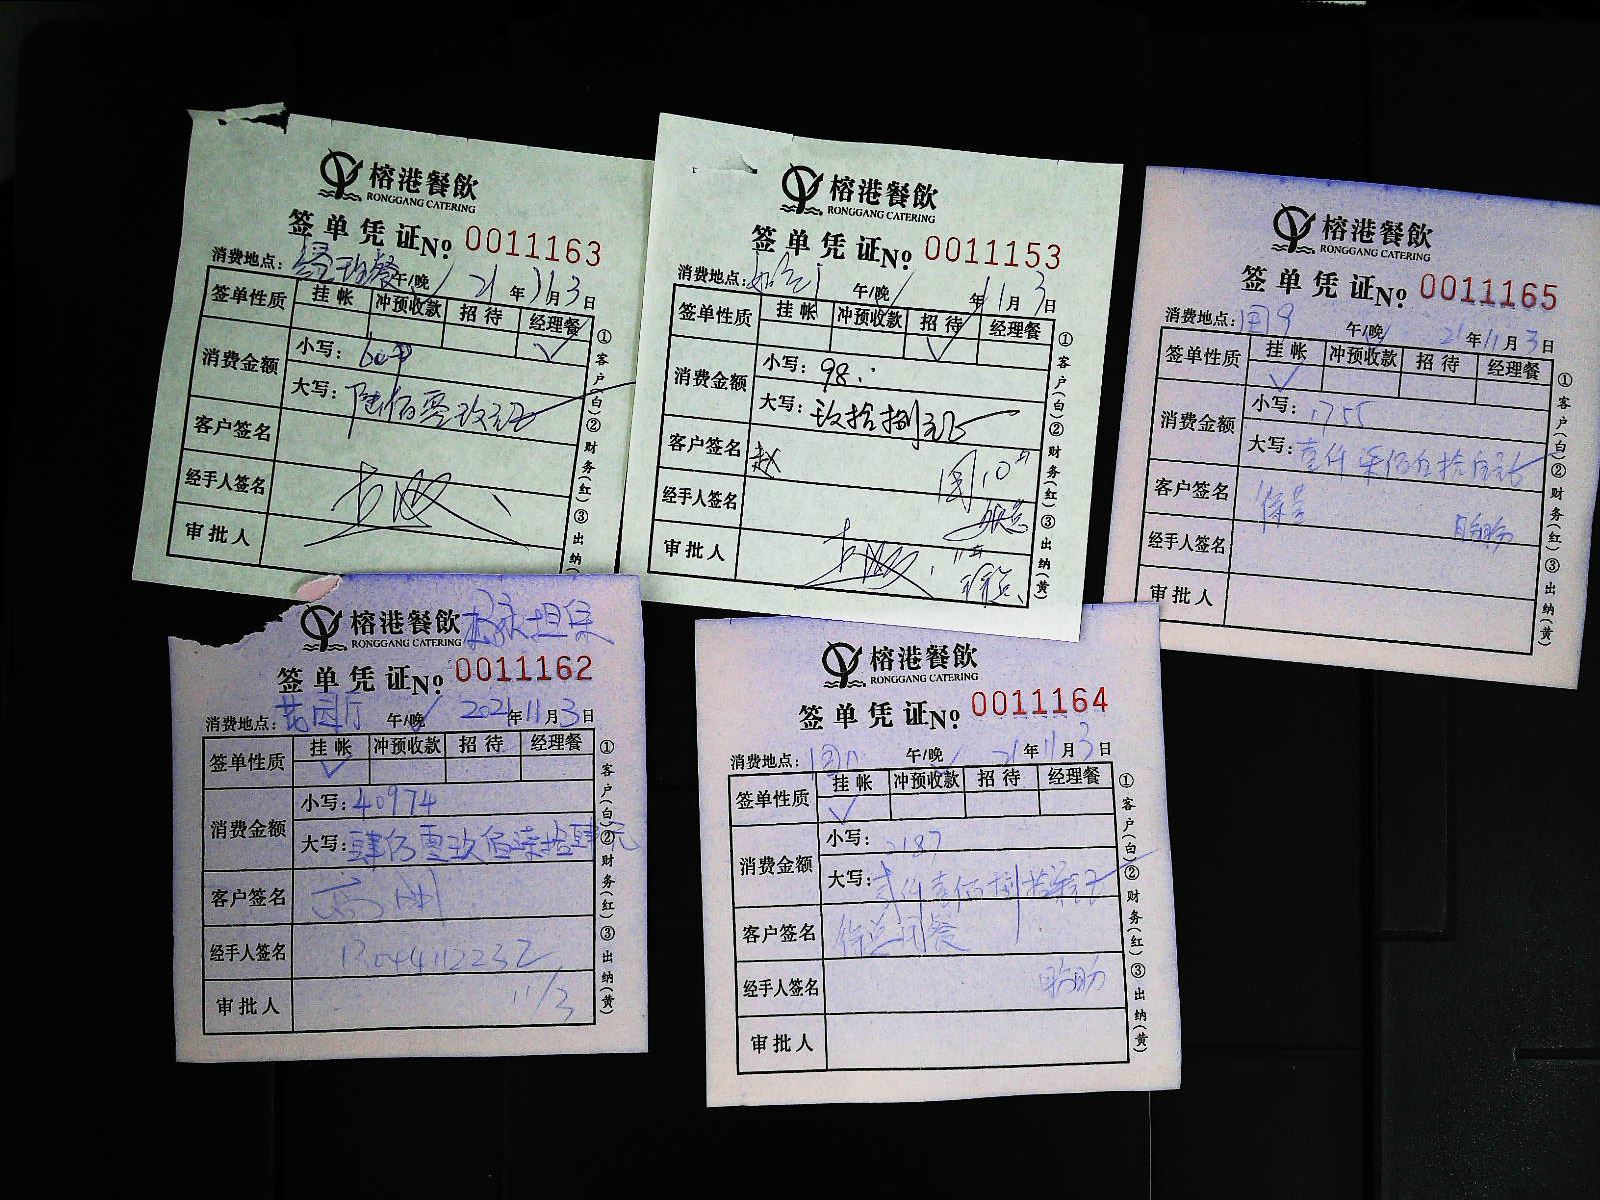 榕港餐飲
RONGGANG CATERING
签单凭证№ 0011163
消费地点: 午/晚 21年11月3日
签单性质 挂帐 冲预收款 招待 经理餐
消费金额 小写:
大写: 陆佰零玖元
客户签名
经手人签名
审批人
①客户(白)②财务(红)③出纳
榕港餐飲
RONGGANG CATERING
签单凭证№ 0011153
消费地点: 午/晚 年11月3日
签单性质 挂帐 冲预收款 招待 经理餐
消费金额 小写: 98.
大写: 玖拾捌元
客户签名 赵
经手人签名
审批人
①客户(白)②财务(红)③出纳(黄)
榕港餐飲
RONGGANG CATERING
签单凭证№ 0011165
消费地点: 午/晚 21年11月3日
签单性质 挂帐 冲预收款 招待 经理餐
消费金额 小写: 1755
大写: 壹仟柒佰伍拾伍元
客户签名
经手人签名
审批人
①客户(白)②财务(红)③出纳(黄)
榕港餐飲 担保
RONGGANG CATERING
签单凭证№ 0011162
消费地点: 花园厅 午/晚 2021年11月3日
签单性质 挂帐 冲预收款 招待 经理餐
消费金额 小写: 40974
大写: 肆万零玖佰柒拾肆元
客户签名
经手人签名 13044112232
审批人 11/3
①客户(白)②财务(红)③出纳(黄)
榕港餐飲
RONGGANG CATERING
签单凭证№ 0011164
消费地点: 午/晚 21年11月3日
签单性质 挂帐 冲预收款 招待 经理餐
消费金额 小写: 2187
大写: 贰仟壹佰捌拾柒元
客户签名
经手人签名
审批人
①客户(白)②财务(红)③出纳(黄)